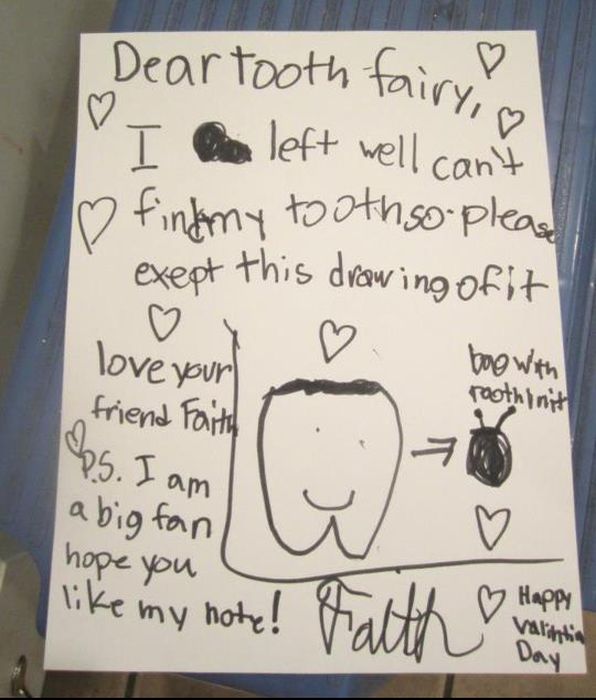 Dear tooth fairy,
I left well can't
find my tooth so please
exept this drawing of it
love your
friend Faith
P.S. I am
a big fan
hope you
like my note!
bag with
tooth in it
Faith
Happy
Day